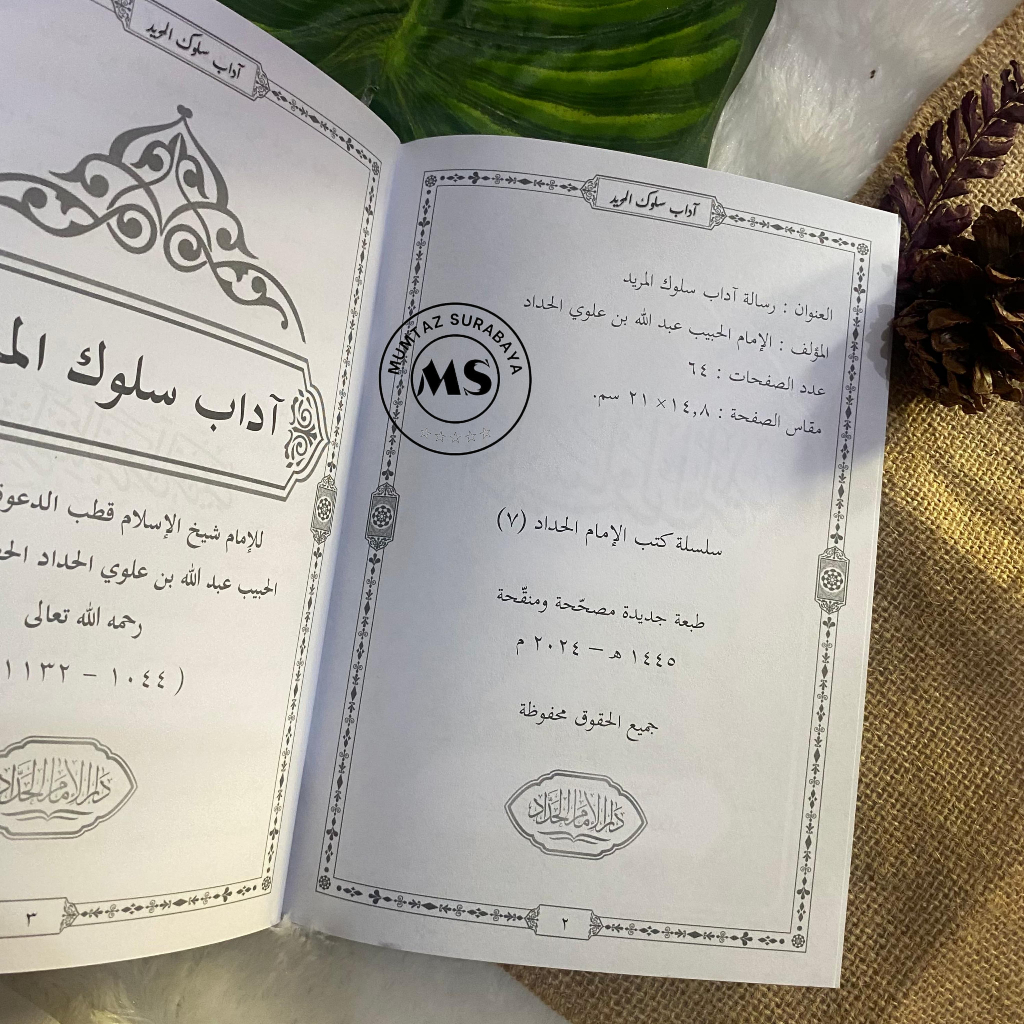 آداب سلوك المريد
العنوان : رسالة آداب سلوك المريد
المؤلف : الإمام الحبيب عبد الله بن علوي الحداد
عدد الصفحات : ٦٤
مقاس الصفحة : ١٤,٨ × ٢١ سم.
سلسلة كتب الإمام الحداد (٧)
طبعة جديدة مصحّحة ومنقّحة
١٤٤٥ هـ – ٢٠٢٤ م
جميع الحقوق محفوظة
دار الإمام الحداد
٢
MUMTAZ SURABAYA
MS
آداب سلوك المريد
آداب سلوك
للإمام شيخ الإسلام قطب الدعوة
الحبيب عبد الله بن علوي الحداد
رحمه الله تعالى
( ١٠٤٤ – ١١٣٢
دار الإمام الحداد
٣